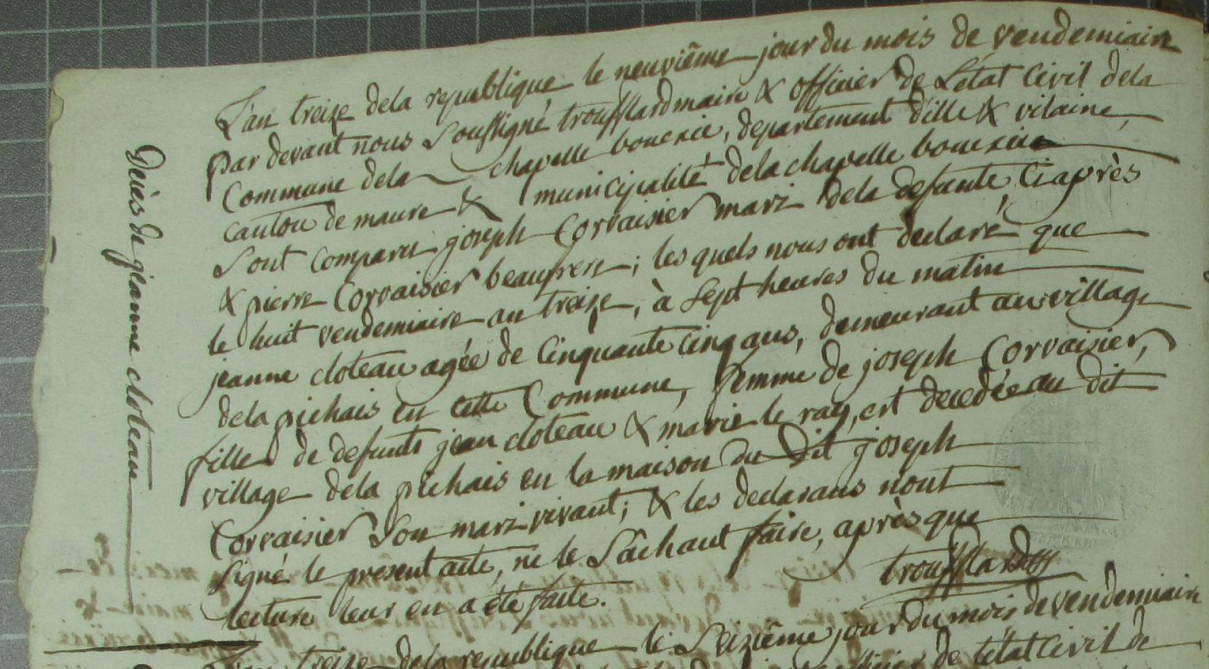 Décès de jeanne cloteau
L'an treize dela republique le neuvième jour du mois de vendemiaire
par devant nous Soussigné troufflard maire & officier de L'etat Civil dela
Commune dela chapelle bouexic, departement d'ille & vilaine,
canton de maure & municipalité dela chapelle bouexic
Sont comparu joseph Corvaisier mari dela defunte Ciaprès
& pierre Corvaisier beaufrere; les quels nous ont declaré que
le huit vendemiaire an treize, à Sept heures du matin
jeanne cloteau agée de Cinquante cinq ans, demeurant au village
dela pichais en cette Commune, femme de joseph Corvaisier,
fille de defunts jean cloteau & marie le ray, est decedée au dit
village dela pichais en la maison du dit joseph
Corvaisier Son mari vivant; & les declarans n'ont
Signé le present acte, ne le Sâchant faire, après que
lecture leur en a été faite. troufflard
L'an treize dela republique le Seizième jour du mois de vendemiaire
officier de l'état Civil de